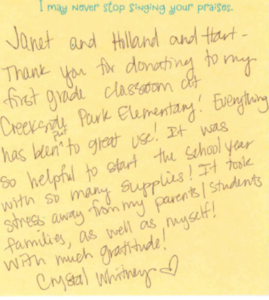 I may never stop singing your praises.
Janet and Holland and Hart -
Thank you for donating to my
first grade classroom at
Creekside Park Elementary! Everything
has been put to great use! It was
so helpful to start the school year
with so many supplies! It took
stress away from my parents/students
families, as well as myself!
With much gratitude!
Crystal Whitney ♡